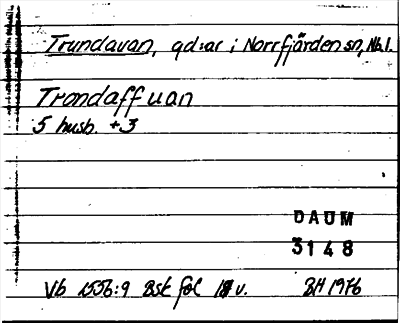 Trundavan, gd:ar i Norrfjärden sn, Nb.l.
Trondaffuan
5 hush. +3
DAUM
3148
Vb 1556:9 Bsk fol 18 v. BH 1976